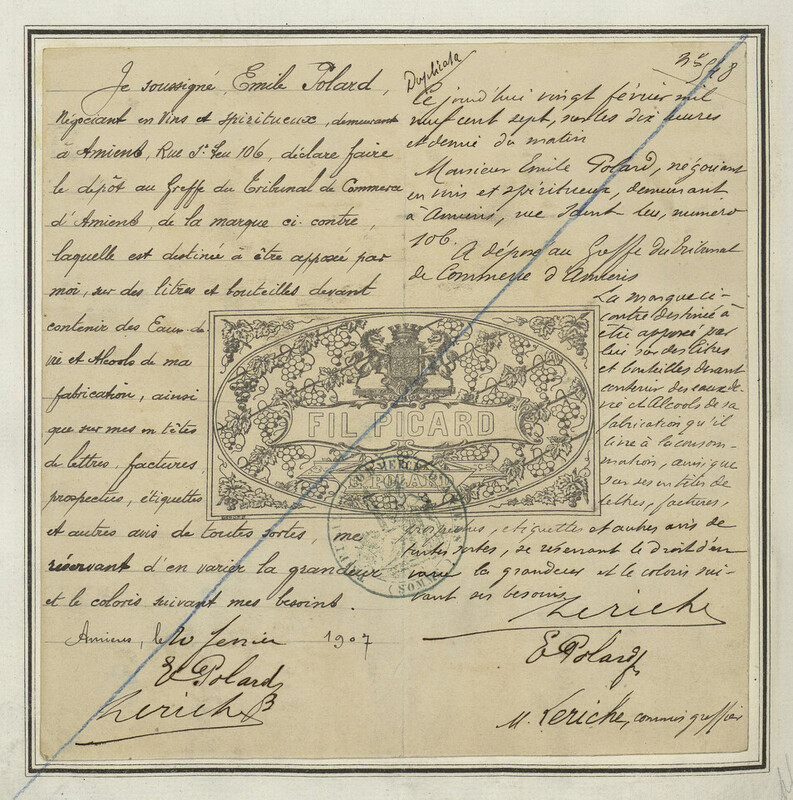 Je soussigné, Emile Polard,
Négociant en Vins et Spiritueux, demeurant
à Amiens, Rue St Leu 106, déclare faire
le dépôt au Greffe du Tribunal de Commerce
d'Amiens, de la marque ci-contre,
laquelle est destinée à être apposée par
moi, sur des litres et bouteilles devant
contenir des Eaux-de-
vie et Alcools de ma
fabrication, ainsi
que sur mes en têtes
de lettres, factures,
prospectus, étiquettes
et autres avis de toutes sortes, me
réservant d'en varier la grandeur
et le coloris suivant mes besoins.
Amiens, le 20 février 1907
E Polard
FIL PICARD
E. POLARD
Duplicata
Ce jourd'hui vingt février mil
neuf cent sept, sur les dix heures
et demie du matin
Monsieur Emile Polard, négociant
en vins et spiritueux, demeurant
à Amiens, rue Saint Leu, numéro
106.
A déposé au Greffe du Tribunal
de Commerce d'Amiens
La marque ci-
contre destinée à
être apposée par
lui sur des litres
et bouteilles devant
contenir des eaux-de-
vie et Alcools de sa
fabrication qu'il
livre à la consom-
mation, ainsi que
sur ses entêtes de
lettres, factures,
prospectus, étiquettes et autres avis de
toutes sortes, se réservant le droit d'en
varier la grandeur et le coloris sui-
vant ses besoins.
E Polard
M. Leriche, commis greffier